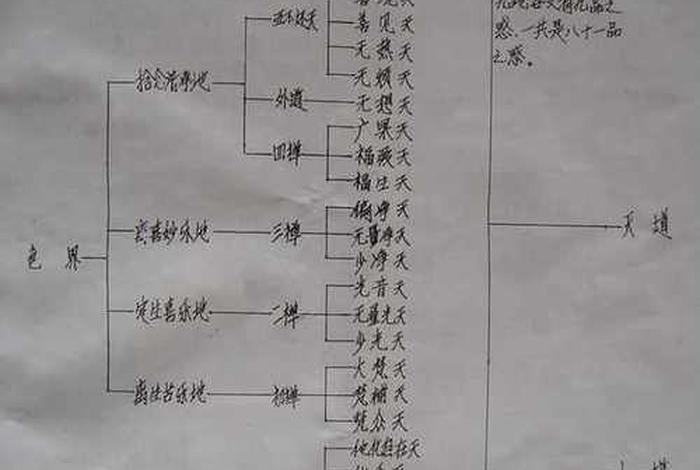 善见天
无热天
无烦天
外道
无想天
四禅
广果天
福爱天
福生天
舍念清净地
九地各又有九品之
惑，一共是八十一品
之惑。
离喜妙乐地
三禅
徧净天
无量净天
少净天
色界
定生喜乐地
二禅
光音天
无量光天
少光天
离生喜乐地
初禅
大梵天
梵辅天
梵众天
他化自在天
天道